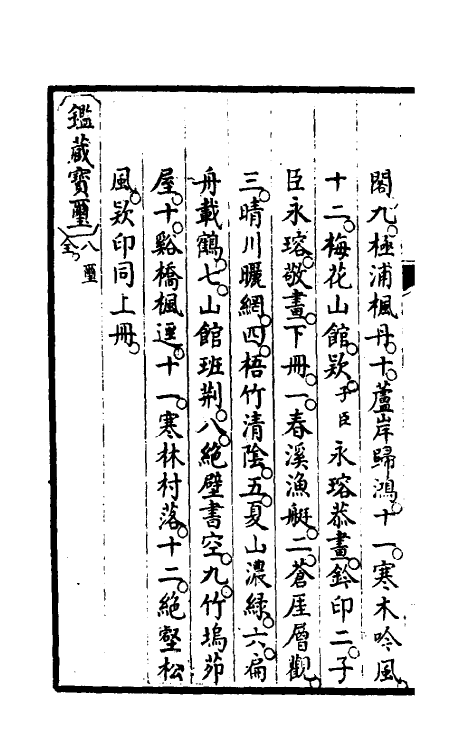 閣。九。極浦楓丹。十。蘆岸歸鴻。十一。寒木吟風。
十二。梅花山館。款。子臣永瑢恭畫。鈐印二。子
臣永瑢。敬畫。下冊。一。春溪漁艇。二。蒼厓層觀。
三。晴川曬網。四。梧竹清陰。五。夏山濃綠。六。扁
舟載鶴。七。山館班荆。八。絕壁書空。九。竹塢茆
屋。十。谿橋楓逕。十一。寒林村落。十二。絕壑松
風。款印同上冊。
鑑藏寶璽 八璽全。